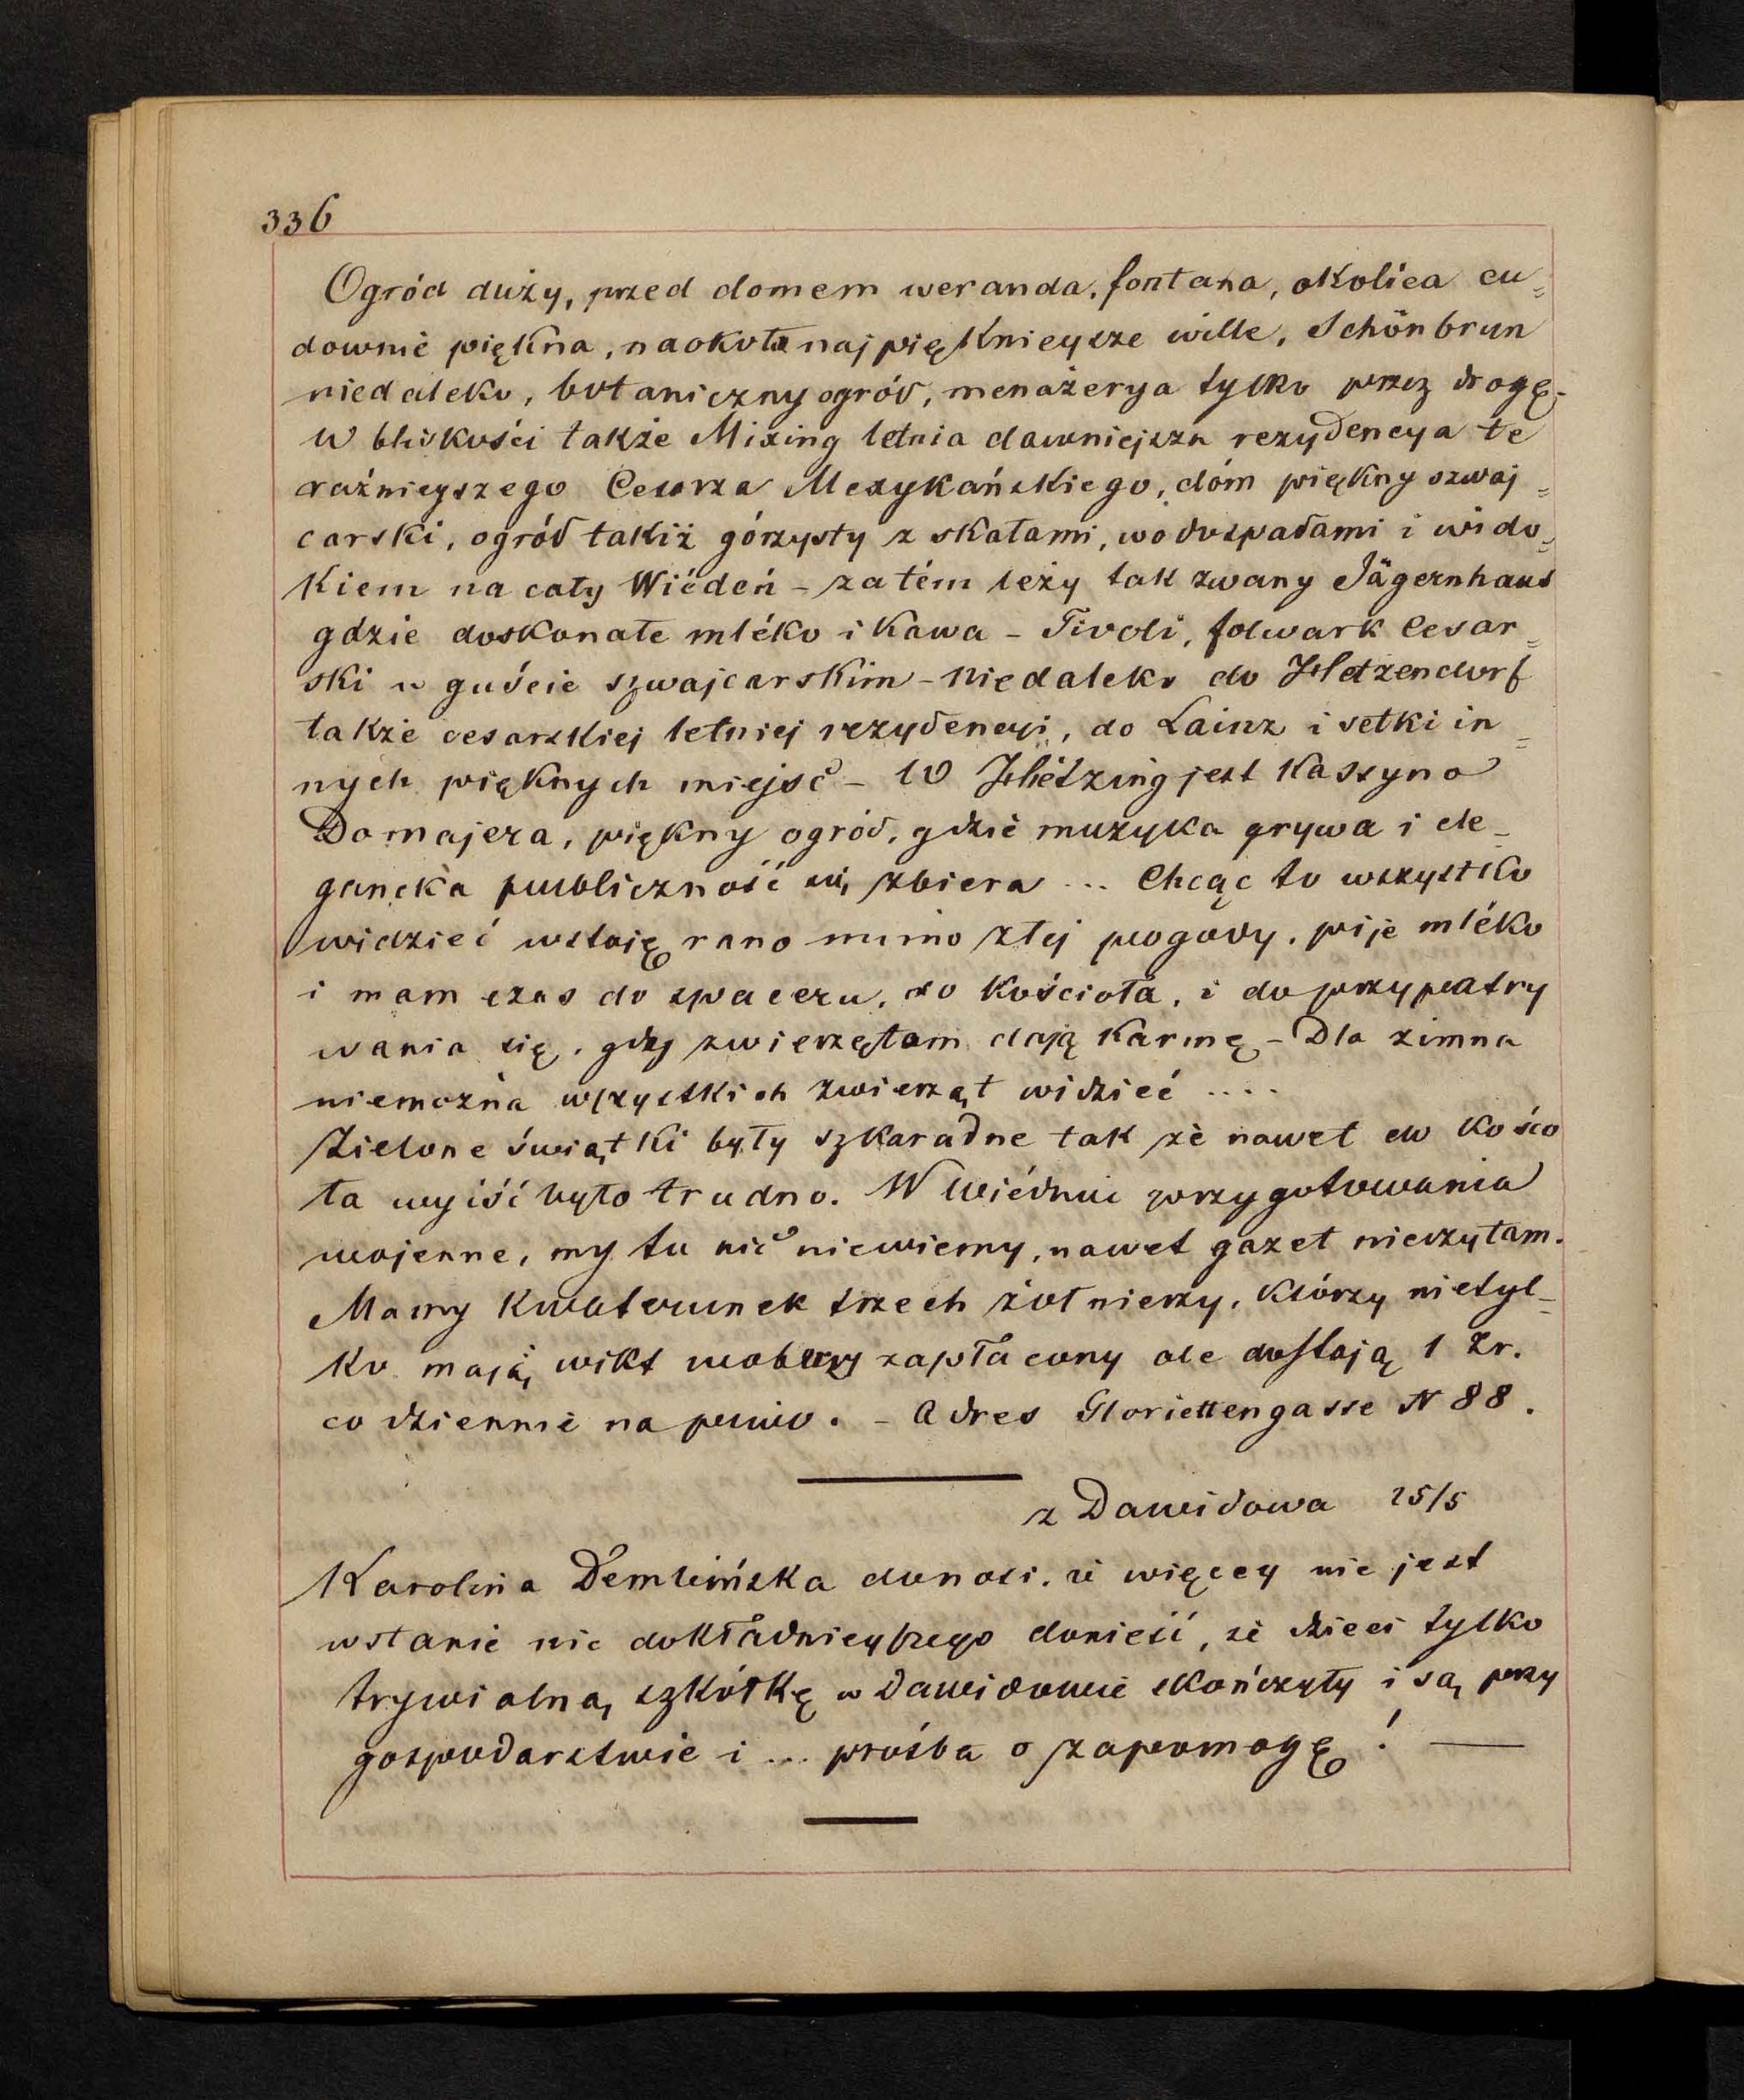 336
Ogród duży, przed domem weranda, fontana, okolica cu=
downie piękna, naokoła najpięknieysze wille, Schönbrun
niedaleko, botaniczny ogród, menażerya tylko przez drogę.
W bliskości także Mixing letnia dawniejsza rezydencya te
raźnieyszego Cesarza Mexykańskiego, dóm piękny szwaj=
carski, ogród takiż górzysty z skałami, wodospadami i wido=
kiem na cały Wiédeń - za tém leży tak zwany Jägernhaus
gdzie doskonałe mléko i kawa - Tivoli, folwark Cesar=
ski w guście szwajcarskim - niedaleko do Hetzendorf
także cesarskiej letniej rezydencyi, do Lainz i setki in=
nych pięknych miejsc - W Hietzing jest Kassyno
Domajera, piękny ogród, gdzie muzyka grywa i ele-
gancka publiczność się zbiera ... Chcąc to wszystko
widzieć wstaję rano mimo złej pogody, pije mléko
i mam czas do spaceru, do Kościoła, i do przypatry
wania się, gdy zwierzętom dają karmę - Dla zimna
niemożna wszystkich zwierząt widzieć ....
Zielone świątki były szkaradne tak że nawet do Kościo
ła wyiść było trudno. W Wiédniu przygotowania
wojenne, my tu nic niewiemy, nawet gazet nieczytam.
Mamy kwaterunek trzech żołnierzy, którzy nietyl-
ko mają wikt zapłacony ale dostają 1 Zr.
codziennie na piwo. - Adres Gloriettengasse N 88.
z Dawidowa 25/5
Karolina Dembińska donosi, że więcey nie jest
wstanie nic dokładnieyszego donieść, że dzieci tylko
trywialną szkółkę w Dawidowie skończyły i są przy
gospodarstwie i ... prośba o zapomogę! —